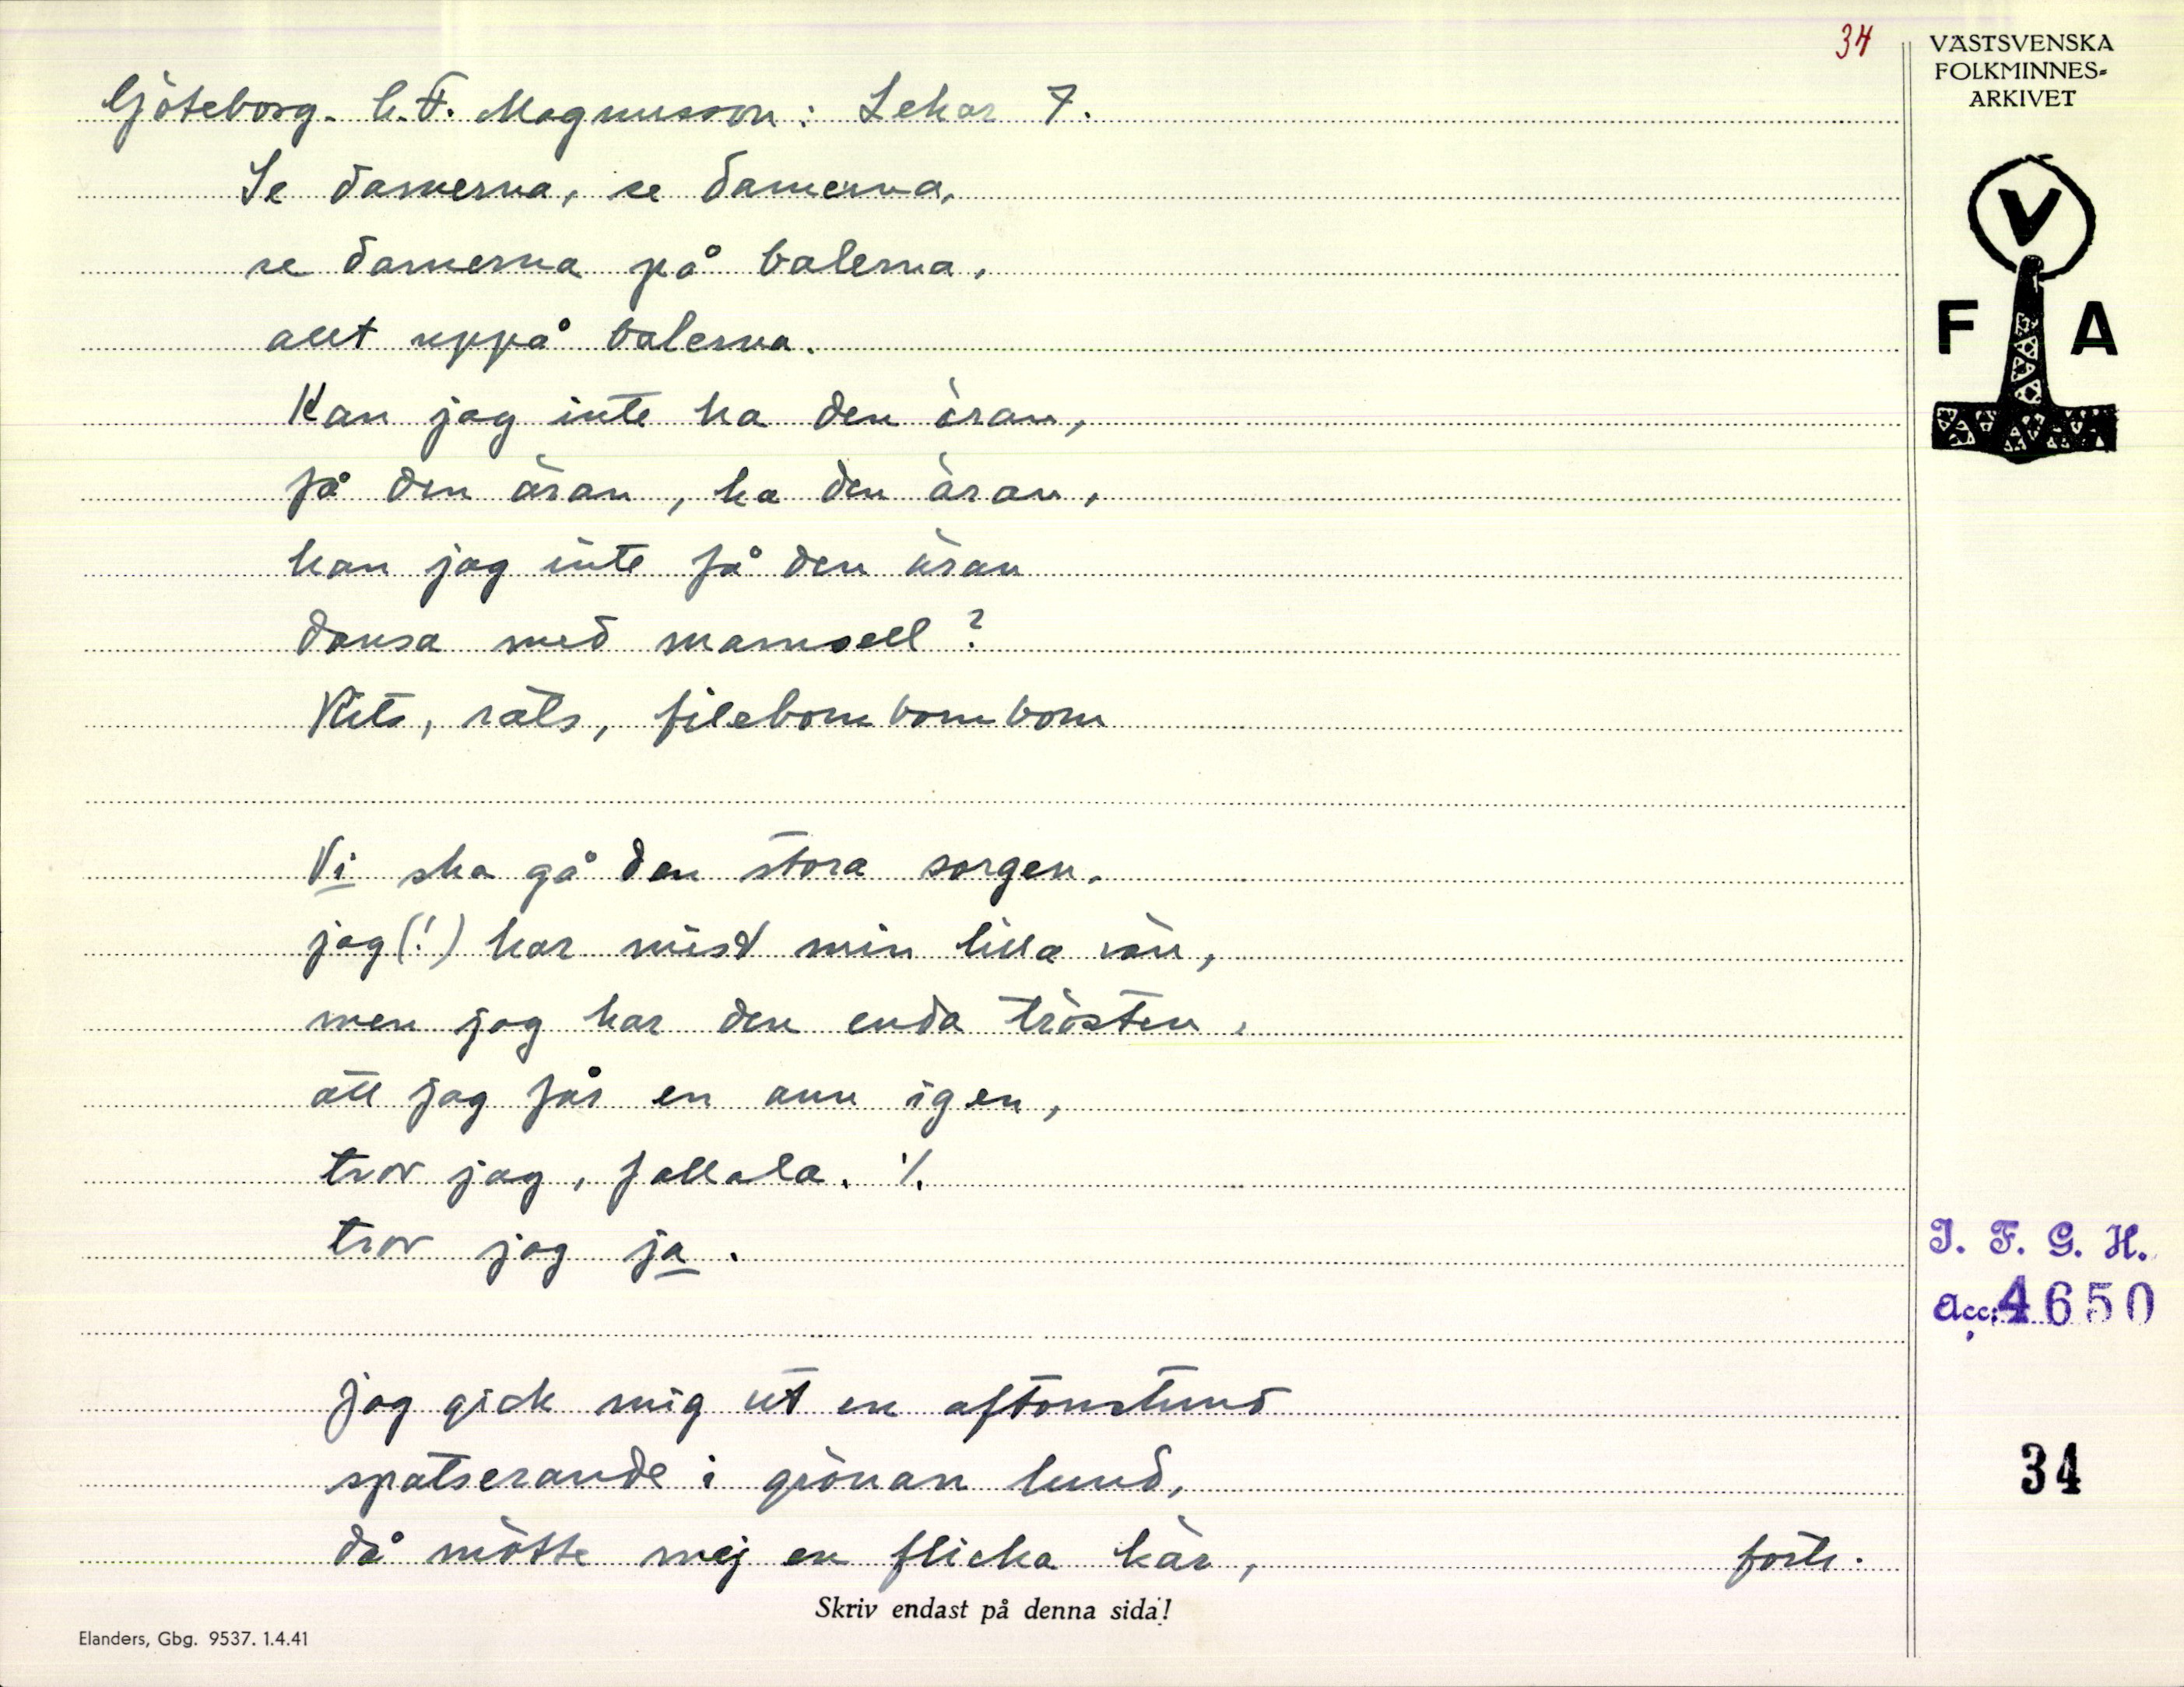 34
VÄSTSVENSKA
FOLKMINNES-
ARKIVET
Göteborg. C.F. Magnusson: Lekar 7.
Se damerna, se damerna,
se damerna på balerna,
allt uppå balerna.
Kan jag inte ha den äran,
få den äran, ha den äran,
kan jag inte få den äran
dansa med mamsell?
Rits, rats, filebom bom bom
Vi ska gå den stora sorgen,
jag (!) har mist min lilla vän,
men jag har den enda trösten,
att jag får en ann igen,
tror jag, fallala. ·/.
tror jag ja.
Jag gick mig ut en aftonstund
spatserande i grönan lund,
då mötte mej en flicka kär,
forts.
Skriv endast på denna sida!
Elanders, Gbg. 9537. 1.4.41
V
F A
I. F. G. H.
acc: 4650
34